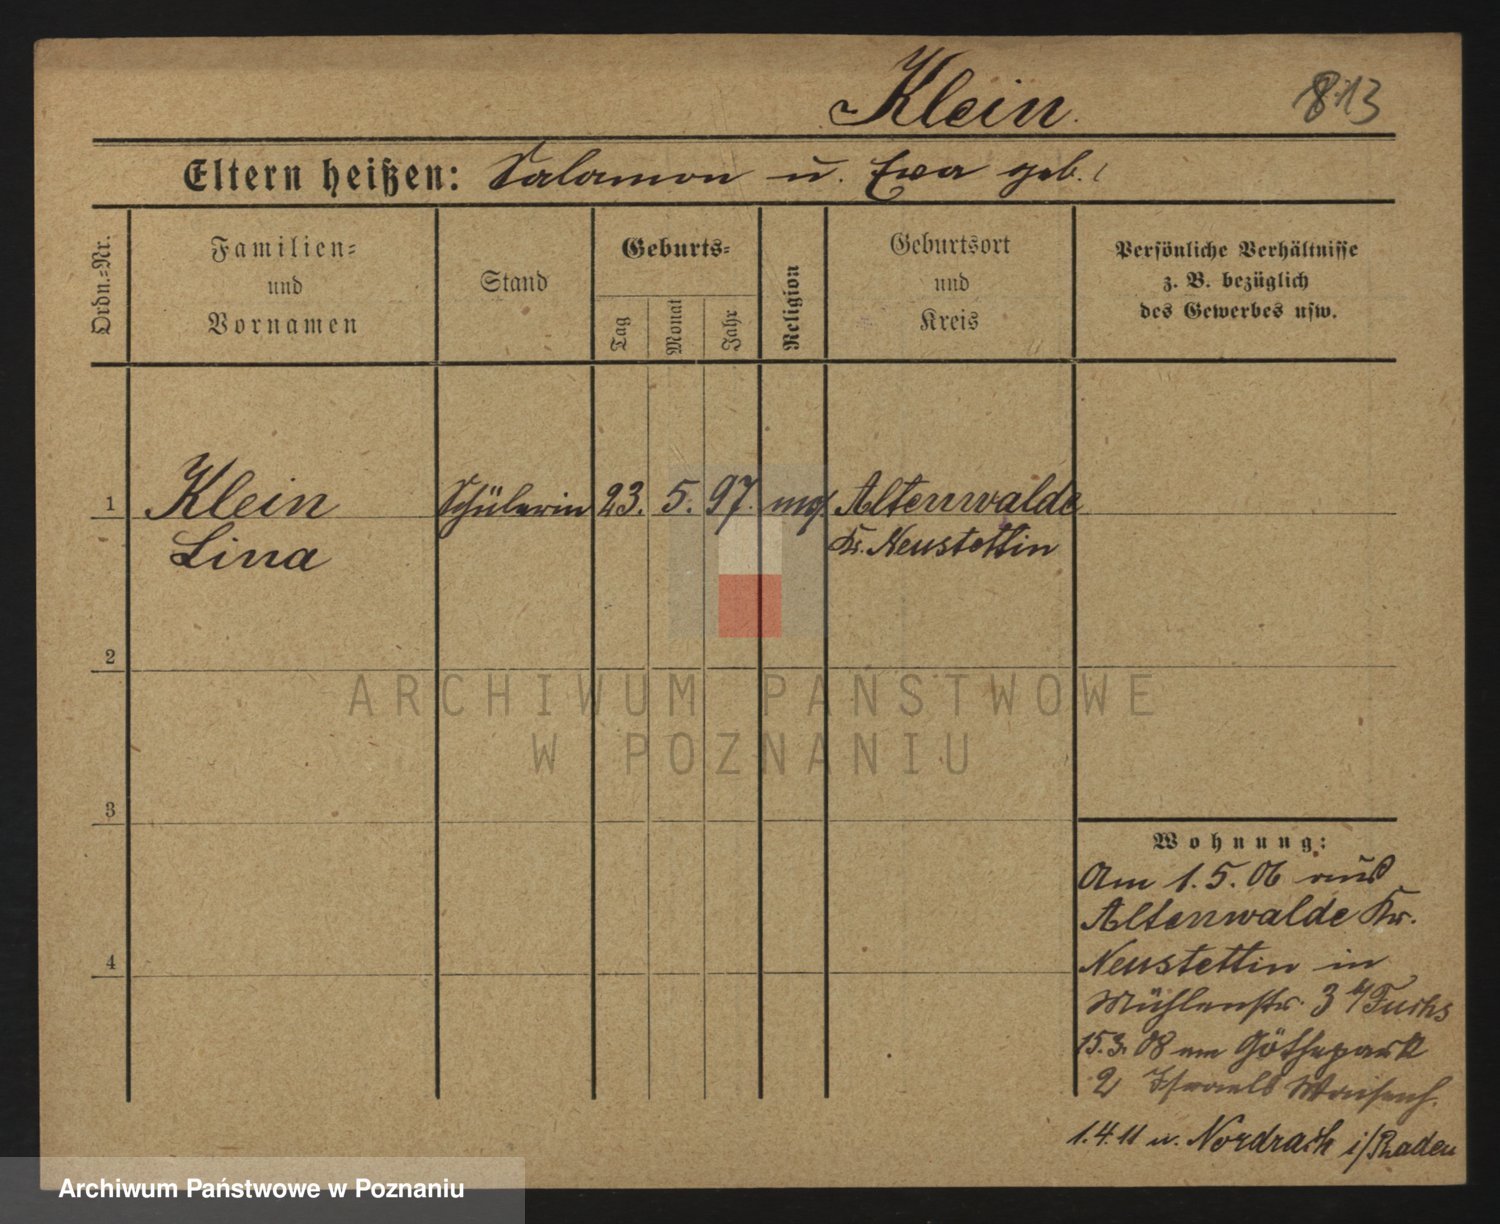 Klein.
813
Eltern heißen: Salamon u. Ewa geb.
Ordn.-Nr.
Familien-
und
Vornamen
Stand
Geburts-
Tag
Monat
Jahr
Religion
Geburtsort
und
Kreis
Persönliche Verhältnisse
z. B. bezüglich
des Gewerbes usw.
1
Klein
Lina
Schülerin
23. 5. 97.
mos.
Altenwalde
Kr. Neustettin
2
3
4
ARCHIWUM PAŃSTWOWE
W POZNANIU
Wohnung:
Am 1. 5. 06 aus
Altenwalde Kr.
Neustettin in
Mühlenstr. 3 b/Fuchs
15.3. 08 am Göthepark
2 Israels Waisenh.
1.4.11 n. Nordrach i/Baden
Archiwum Państwowe w Poznaniu